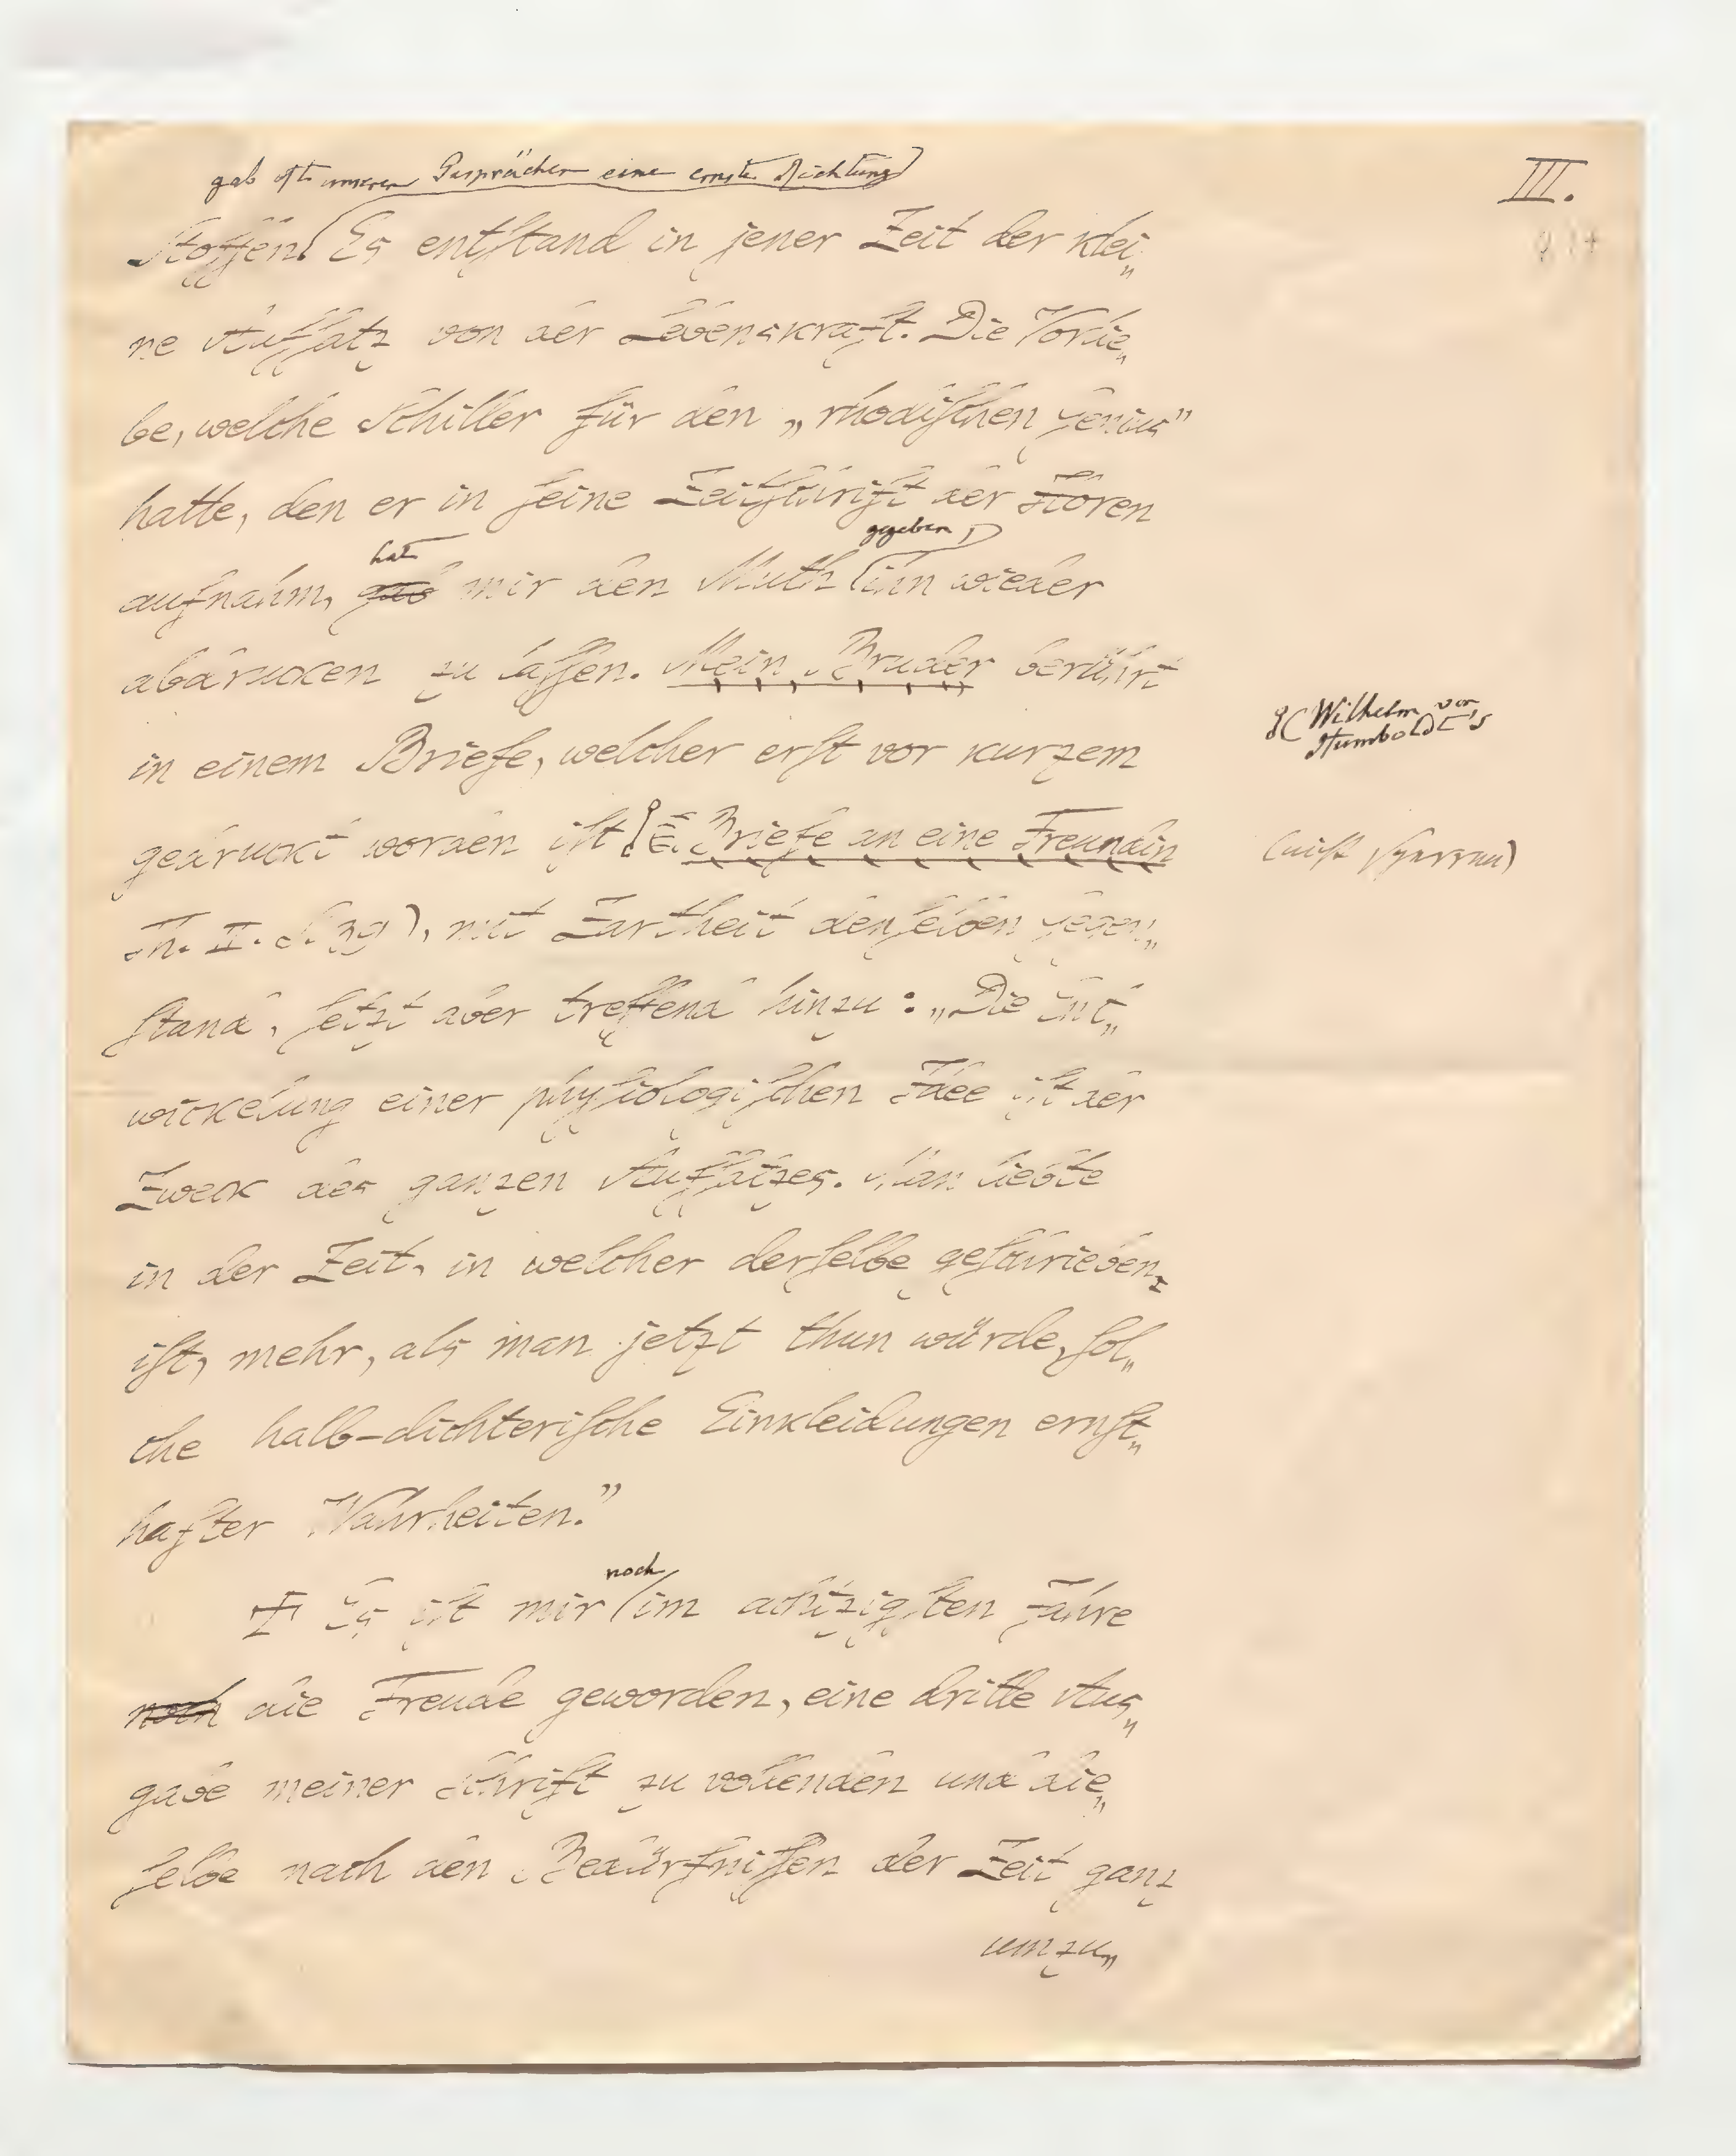 III.
gab oft unseren Gesprächen eine ernste Richtung
Stoffen. Es entstand in jener Zeit der klei„
ne Aufsatz von der Lebenskraft. Die Vorlie„
be, welche Schiller für den „rhodischen Genius”
hatte, den er in seine Zeitschrift der Horen
hat gegeben
aufnahm, gab mir den Muth ihn wieder
abdrucken zu lassen. Mein Bruder berührt
in einem Briefe, welcher erst vor kurzem
Wilhelm von
Humboldt's
gedruckt worden ist (Briefe an eine Freundin
(nicht sperren)
Th. II. S. 39), mit Zartheit denselben Gegen„
stand, setzt aber treffend hinzu: „Die Ent„
wickelung einer physiologischen Idee ist der
Zweck des ganzen Aufsatzes. Man liebte
in der Zeit, in welcher derselbe geschrieben
ist, mehr, als man jetzt thun würde, sol„
che halb-dichterische Einkleidungen ernst„
hafter Wahrheiten.”
noch
Es ist mir im achtzigsten Jahre
noch die Freude geworden, eine dritte Aus„
gabe meiner Schrift zu vollenden und die„
selbe nach den Bedürfnissen der Zeit ganz
umzu„